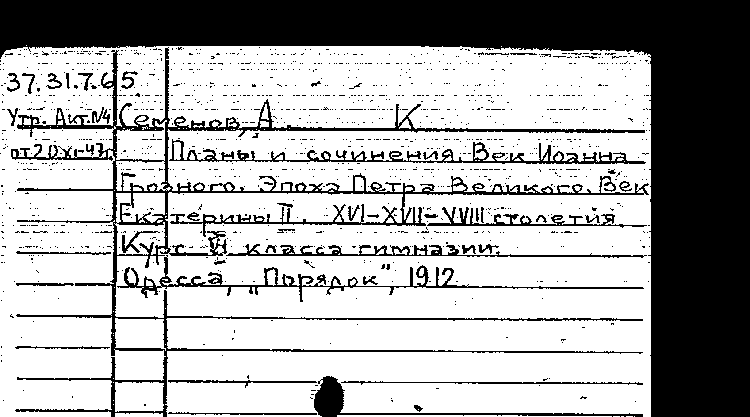 37.31.7.65
Утр. Акт.№4 Семенов, А. К
от 20/XI-47г. Планы и сочинения. Век Иоанна
Грозного. Эпоха Петра Великого. Век
Екатерины II. XVI-XVII-XVIII столетия
Курс VI класса гимназии.
Одесса, „Порядок", 1912